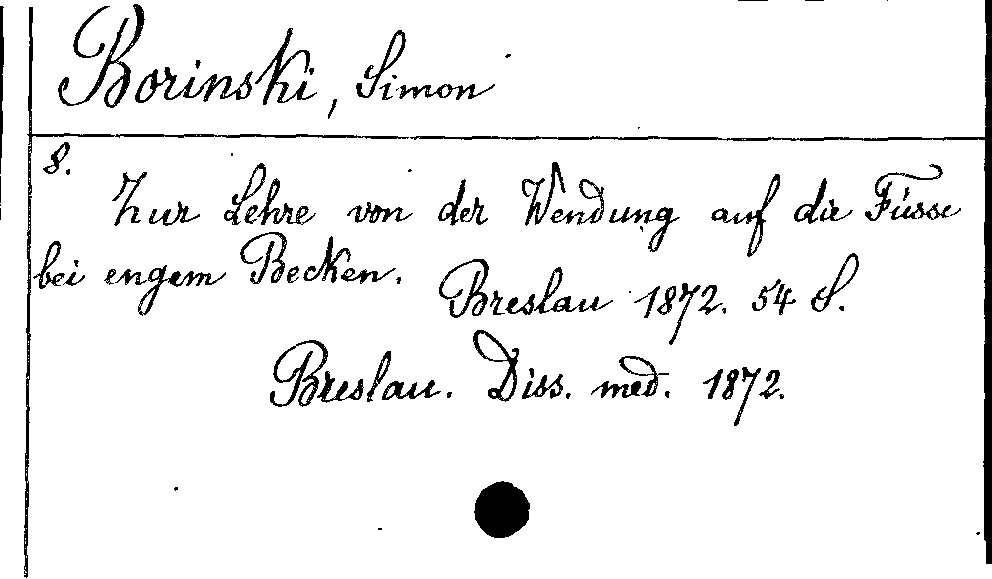 Borinski, Simon
8.
Zur Lehre von der Wendung auf die Füsse
bei engem Becken.
Breslau 1872. 54 S.
Breslau. Diss. med. 1872.